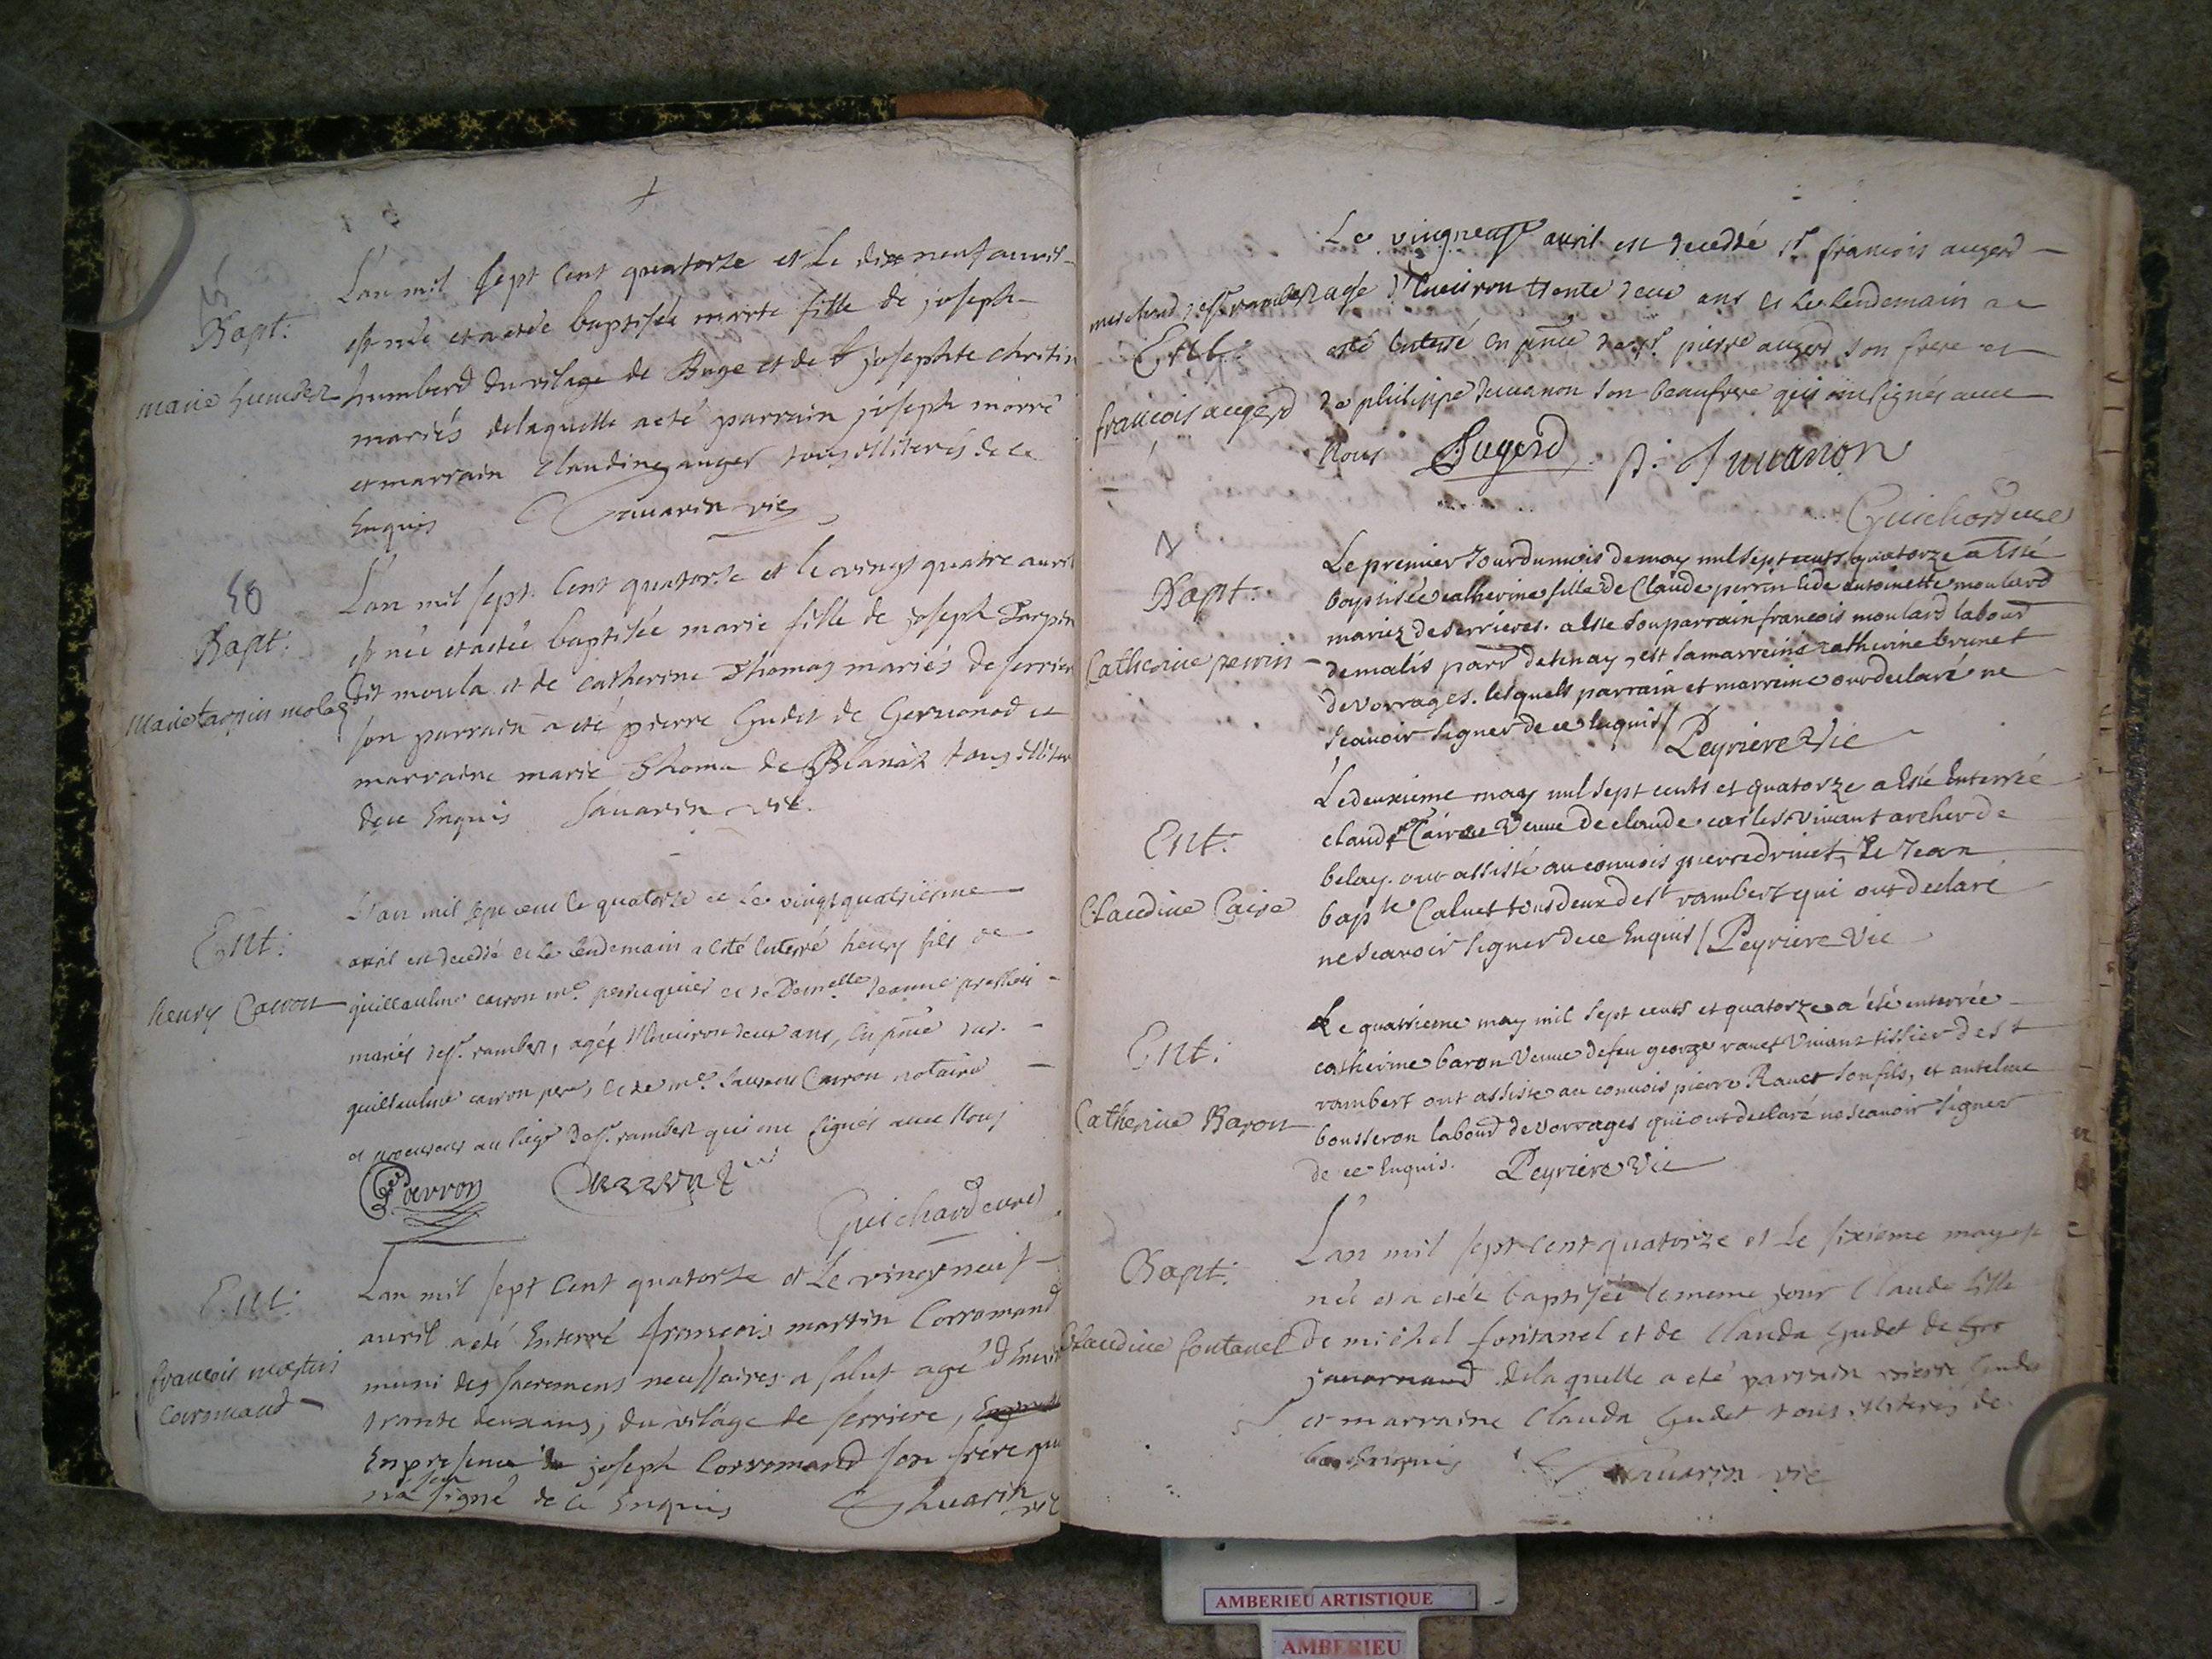 Bapt:
marie humberd
L'an mil sept cent quatorze et le dix neuf avril
est née et a etée baptisée marie fille de joseph
humberd du vilage de Buge et de josephte chritin
mariés de laquelle a eté parrain joseph morré
et marrain claudine auger tous illiterés de ce
Enquis Savarin vic
50
Bapt:
Marie tarpin mola
L'an mil sept Cent quatorze et le vingt quatre avril
est née et a etée baptisée marie fille de joseph Tarpin
dit moula et de catherine Thomas mariés de serrier
son parrain a eté pierre Gudet de Gervonod et
marraine marie Thoma de Blanaz tous illiter
de ce Enquis Savarin vic.
Ent:
henry Carron
L'an mil sept cent et quatorze et le vingt quatrieme
avril est decedé et le lendemain a esté enterré henry fils de
guillaulme carron me perruquier et de Demelle Jeanne
mariés de st. rambert, agés d'environ deux ans, en pnce du d.
guillaulme carron pere, et de me. Carron notaire
et procureur au siege de st. rambert qui ont signés avec Nous
Carron Carron
Guichard curé
Ent:
francois martin
corromand
L'an mil sept cent quatorze et le vingt neuf
avril a eté Enterré francois martin Corromand
muni des sacremens necessaires a salut agé d'Environ
trante deux ans, du vilage de serriere,
En presence de joseph Corromand son frere qui
n'a signé de ce Enquis Savarin vic
Le vingneuf avril est decedé sr. francois augerd
marchand de st. rambert agé d'environ trente deux ans et le lendemain a
Ent:
esté enterré en pnce de sr. pierre augerd son frere et
francois augerd
de philippe Juvanon son beaufrere qui ont signés avec
Nous Augerd p. Juvanon
Guichard curé
Bapt:
Catherine perrin
Le premier Jour du mois de may mil sept cents quatorze a Esté
baptisée catherine fille de Claude perrin Et de antoinette moulard
mariez de serrieres. a Esté son parrain francois moulard labour
de malis parr de tenay, est sa marreine catherine brunet
de vorrages. lesquels parrain et marreine ont declaré ne
scavoir signer de ce Enquis / Peyriere Vic
Ent.
Claudine Caire
Le deuxieme may mil sept cents et quatorze a Esté Enterrée
claudne Caire Veuve de claude carles vivant archer de
belay. ont assisté au convois pierre drivet, Et Jean
bapte Caluet tous deux de st rambert qui ont declaré
ne scavoir signer de ce Enquis / Peyriere Vic
Ent:
Catherine Baron
Le quatrieme may mil sept cents et quatorze a été enterrée
catherine baron Veuve de feu george ravet Vivant tissier de st
rambert ont assisté au convois pierre Ravet son fils, et antelme
bousseron labour de vorrages qui ont declaré ne scavoir signer
de ce Enquis. Peyriere Vic
Bapt:
Claudine fontanel
L'an mil sept cent quatorze et le sixieme may est
née et a etée baptisée le meme jour Claude fille
de michel fontanel et de Clauda Gudet de
javornaud de laquelle a eté parrain pierre Gudet
et marraine Clauda Gudet tous illiterés de
ce Enquis Savarin vic
AMBERIEU ARTISTIQUE
AMBERIEU